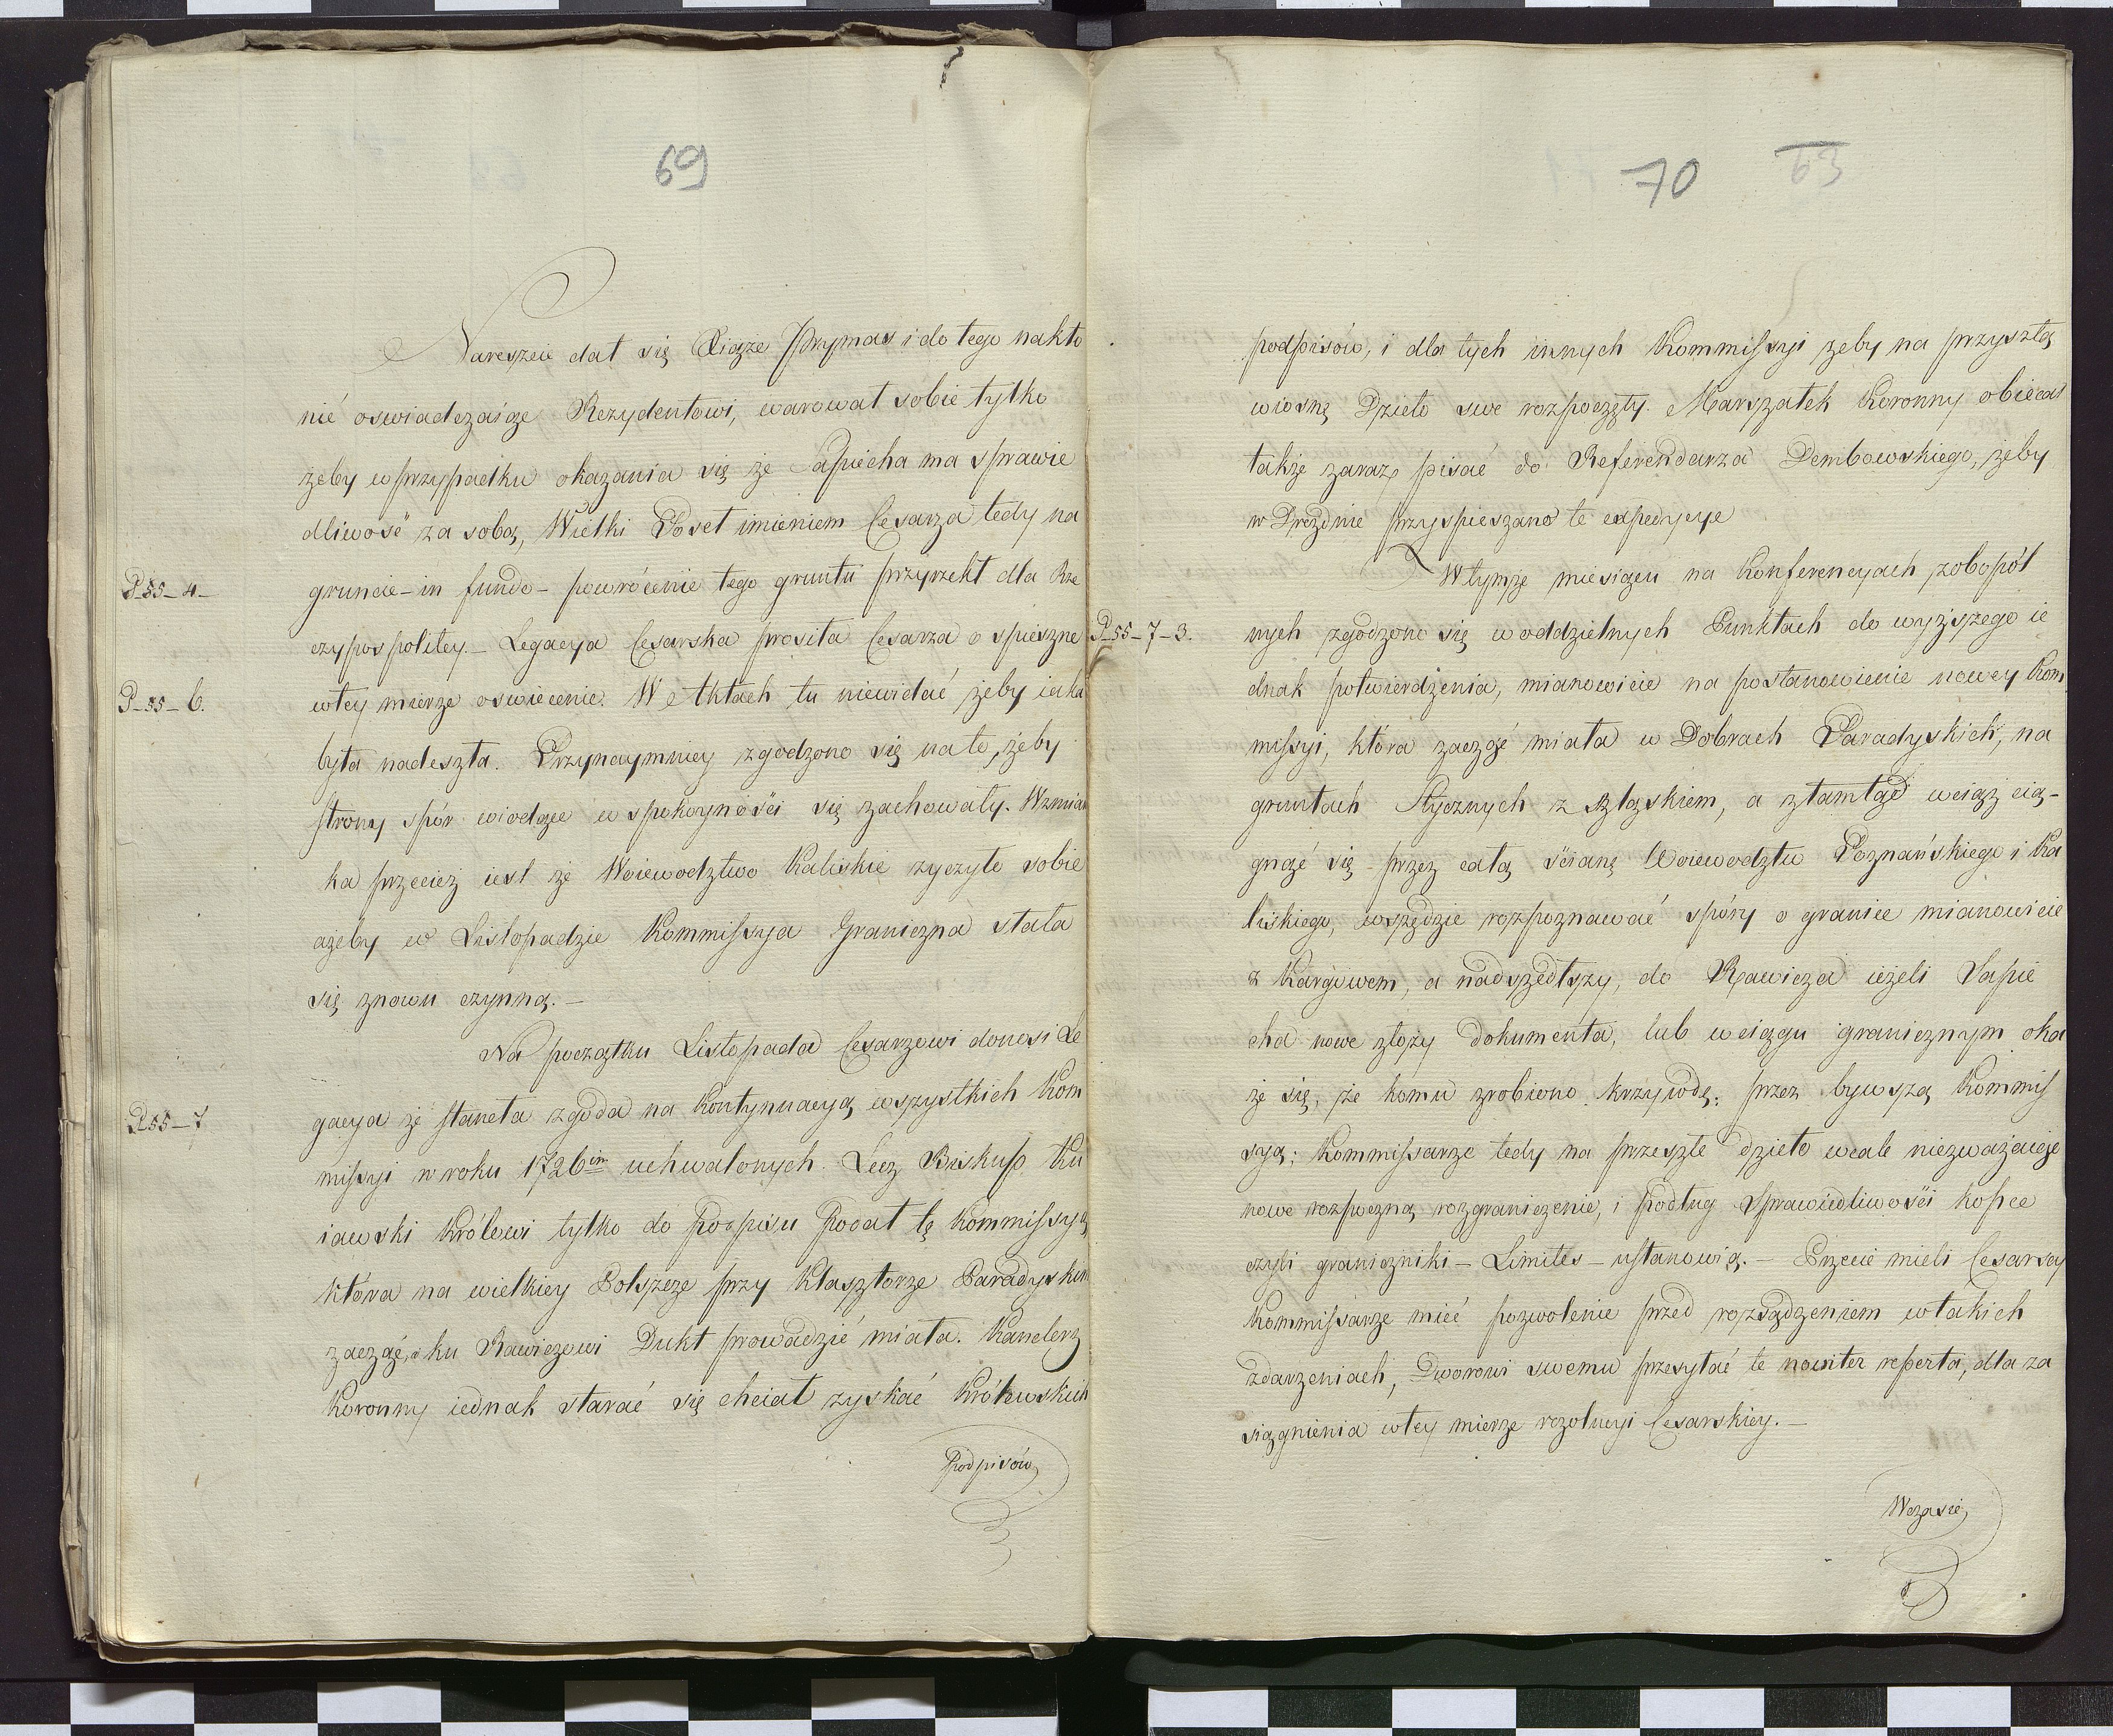 69
Nareszcie dał się Xiąże Prymas i do tego nakło
nić oswiadczaiąc Rezydentowi, warował sobie tylko
żeby w przypadku okazania się że Sapiecha ma sprawie
dliwość za sobą, Wielki Poseł imieniem Cesarza tedy na
P-55-4-
gruncie - in fundo - powrócenie tego gruntu przyrzekł dla Rze
czypospolitey. - Legacya Cesarska prosiła Cesarza o spieszne
P-55-6.
w tey mierze oswiecenie. W Aktach tu niewidać żeby iaka
była nadeszła. Przynaymniey zgodzono się na to, żeby
strony spór wiodące w spokoyności się zachowały. Wzmian
ka przecież iest że Woiewodztwo Kaliskie zyczyło sobie
ażeby w Listopadzie Kommissya Graniczna stała
się znowu czynną. -
Na początku Listopada Cesarzowi donosi Le
P-55-7
gacya że stanęła zgoda na kontynuacyą wszystkich Kom
missyi w roku 1726im uchwalonych. Lecz Biskup Ku
iawski Królowi tylko do Podpisu Podał tę Kommissyą
która na wielkiey Polszcze przy Klasztorze Paradyskim
zacząć, a ku Rawiczowi Dukt prowadzić miała. Kanclerz
Koronny iednak starać się chciał zyskać Królewskich
Podpisów,
70 63
podpisów, i dla tych innych Kommissyi żeby na przyszłą
wiosnę Dzieło swe rozpoczęły. Marszałek Koronny obiecał
także zaraz pisać do Referendarza Dembowskiego, żeby
w Dreznie przyspieszano te expedycye
W tymże miesiącu na Konferencyach zobopól
P-55-7-3.
nych zgodzono się w oddzielnych Punktach do wyższego ie
dnak potwierdzenia, mianowicie na postanowienie nowey Kom
missyi, która zacząć miała w Dobrach Paradyskich, na
gruntach Stycznych z Szląskiem, a ztamtąd wciąż cią-
gnąć się przez całą ścianę Woiewodztw Poznańskiego i Ka
liskiego, wszędzie rozpoznawać spóry o granice mianowicie
z Kargowem, a nadszedłszy, do Rawicza ieżeli Sapie
cha nowe złoży Dokumenta, lub w ciągu granicznym oka
że się, że komu zrobiono krzywdę, przez bywszą Kommis
syą; Kommissarze tedy na przeszłe dzieło wcale niezważaiąc
nowe rozpoczną rozgraniczenie, i podług Sprawiedliwości kopce
czyli graniczniki - Limites - ustanowią. - Przecie mieli Cesarscy
Kommissarze mieć pozwolenie przed rozsądzeniem w takich
zdarzeniach, Dworowi swemu przesyłać te noviter reperta, dla za
siągnienia w tey mierze rezolucyi Cesarskiey. -
W czasie,